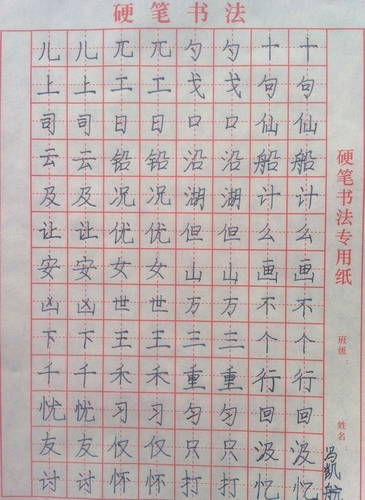 硬笔书法
儿儿兀兀勺勺十十
上上工工戈戈句句
司司日日口口仙仙
云云铅铅沿沿船船
及及况况湖湖计计
让让优优但但么么
安安女女山山画画
凶凶世世万方不不
下下王王三三个个
千千禾禾重重行行
忧忧习习匀匀回回
友友仅仅只只汲汲
讨讨怀怀打打忆忆
硬笔书法专用纸
班级：
姓名：
冯凯航